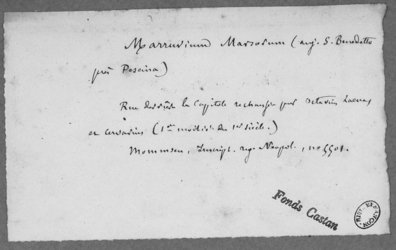 Marruvium Marsorum (auj. S. Benedetto
près Pescina)
Rue derrière le Capitole par Octavius Laenas
et (1re moitié du 1er siècle.)
Mommsen, Inscript. reg. Neapol., no 5501.
Fonds Castan